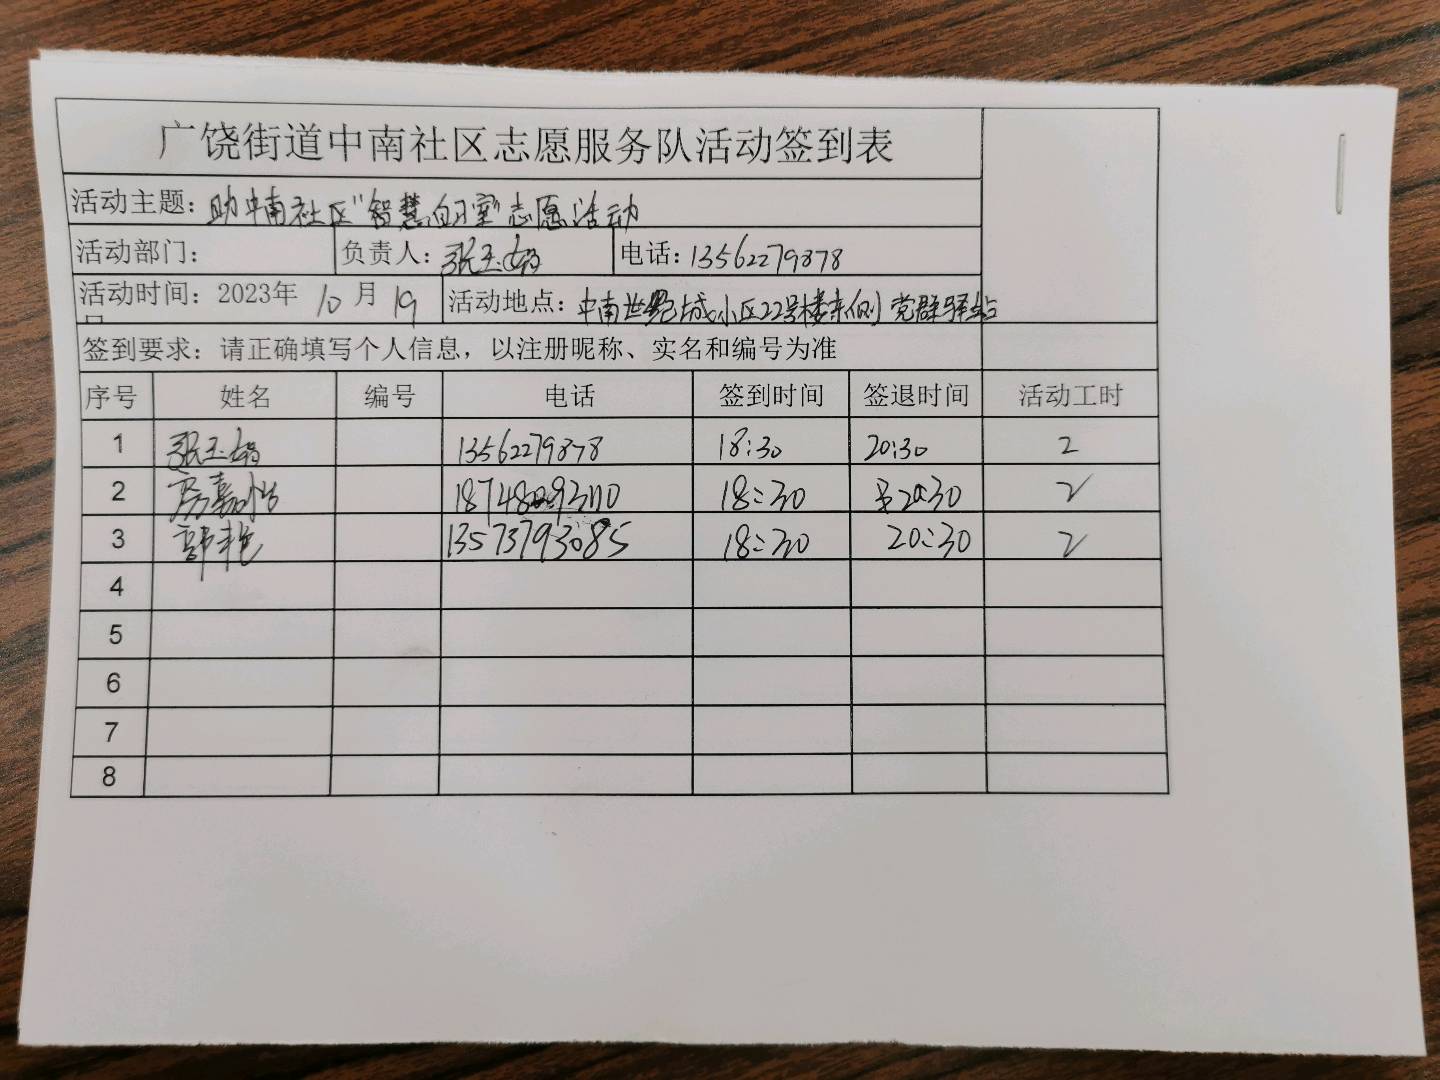 广饶街道中南社区志愿服务队活动签到表
活动主题: 助中南社区"智慧自习室"志愿活动
活动部门: 负责人: 张玉娟 电话: 13562279878
活动时间: 2023年 10 月 19 日 活动地点: 中南世纪城小区22号楼东侧 党群驿站
签到要求: 请正确填写个人信息, 以注册昵称、实名和编号为准
序号 姓名 编号 电话 签到时间 签退时间 活动工时
1 张玉娟 13562279878 18:30 20:30 2
2 嘉怡 18:30 20:30 2
3 郭艳 13573793085 18:30 20:30 2
4
5
6
7
8